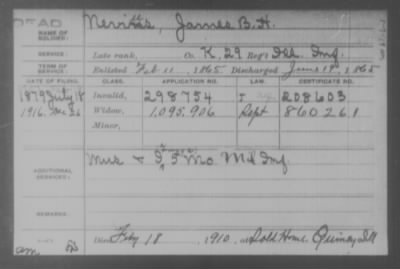 NAME OF SOLDIER: Nevitts, James B. H.
SERVICE: Late rank, Co. K, 29 Reg't Ill. Inf.
TERM OF SERVICE: Enlisted Feb 11, 1865. Discharged June 19, 1865
DATE OF FILING. CLASS. APPLICATION NO. LAW. CERTIFICATE NO.
1879 July 18 Invalid, 298754 208603
1916. Dec 26 Widow, 1.095.906 Sept 860261
Minor,
ADDITIONAL SERVICES: Mus 5 Mo. Mil Inf.
REMARKS:
Died Feby 18, 1910, at Sold. Home. Quincy Ill